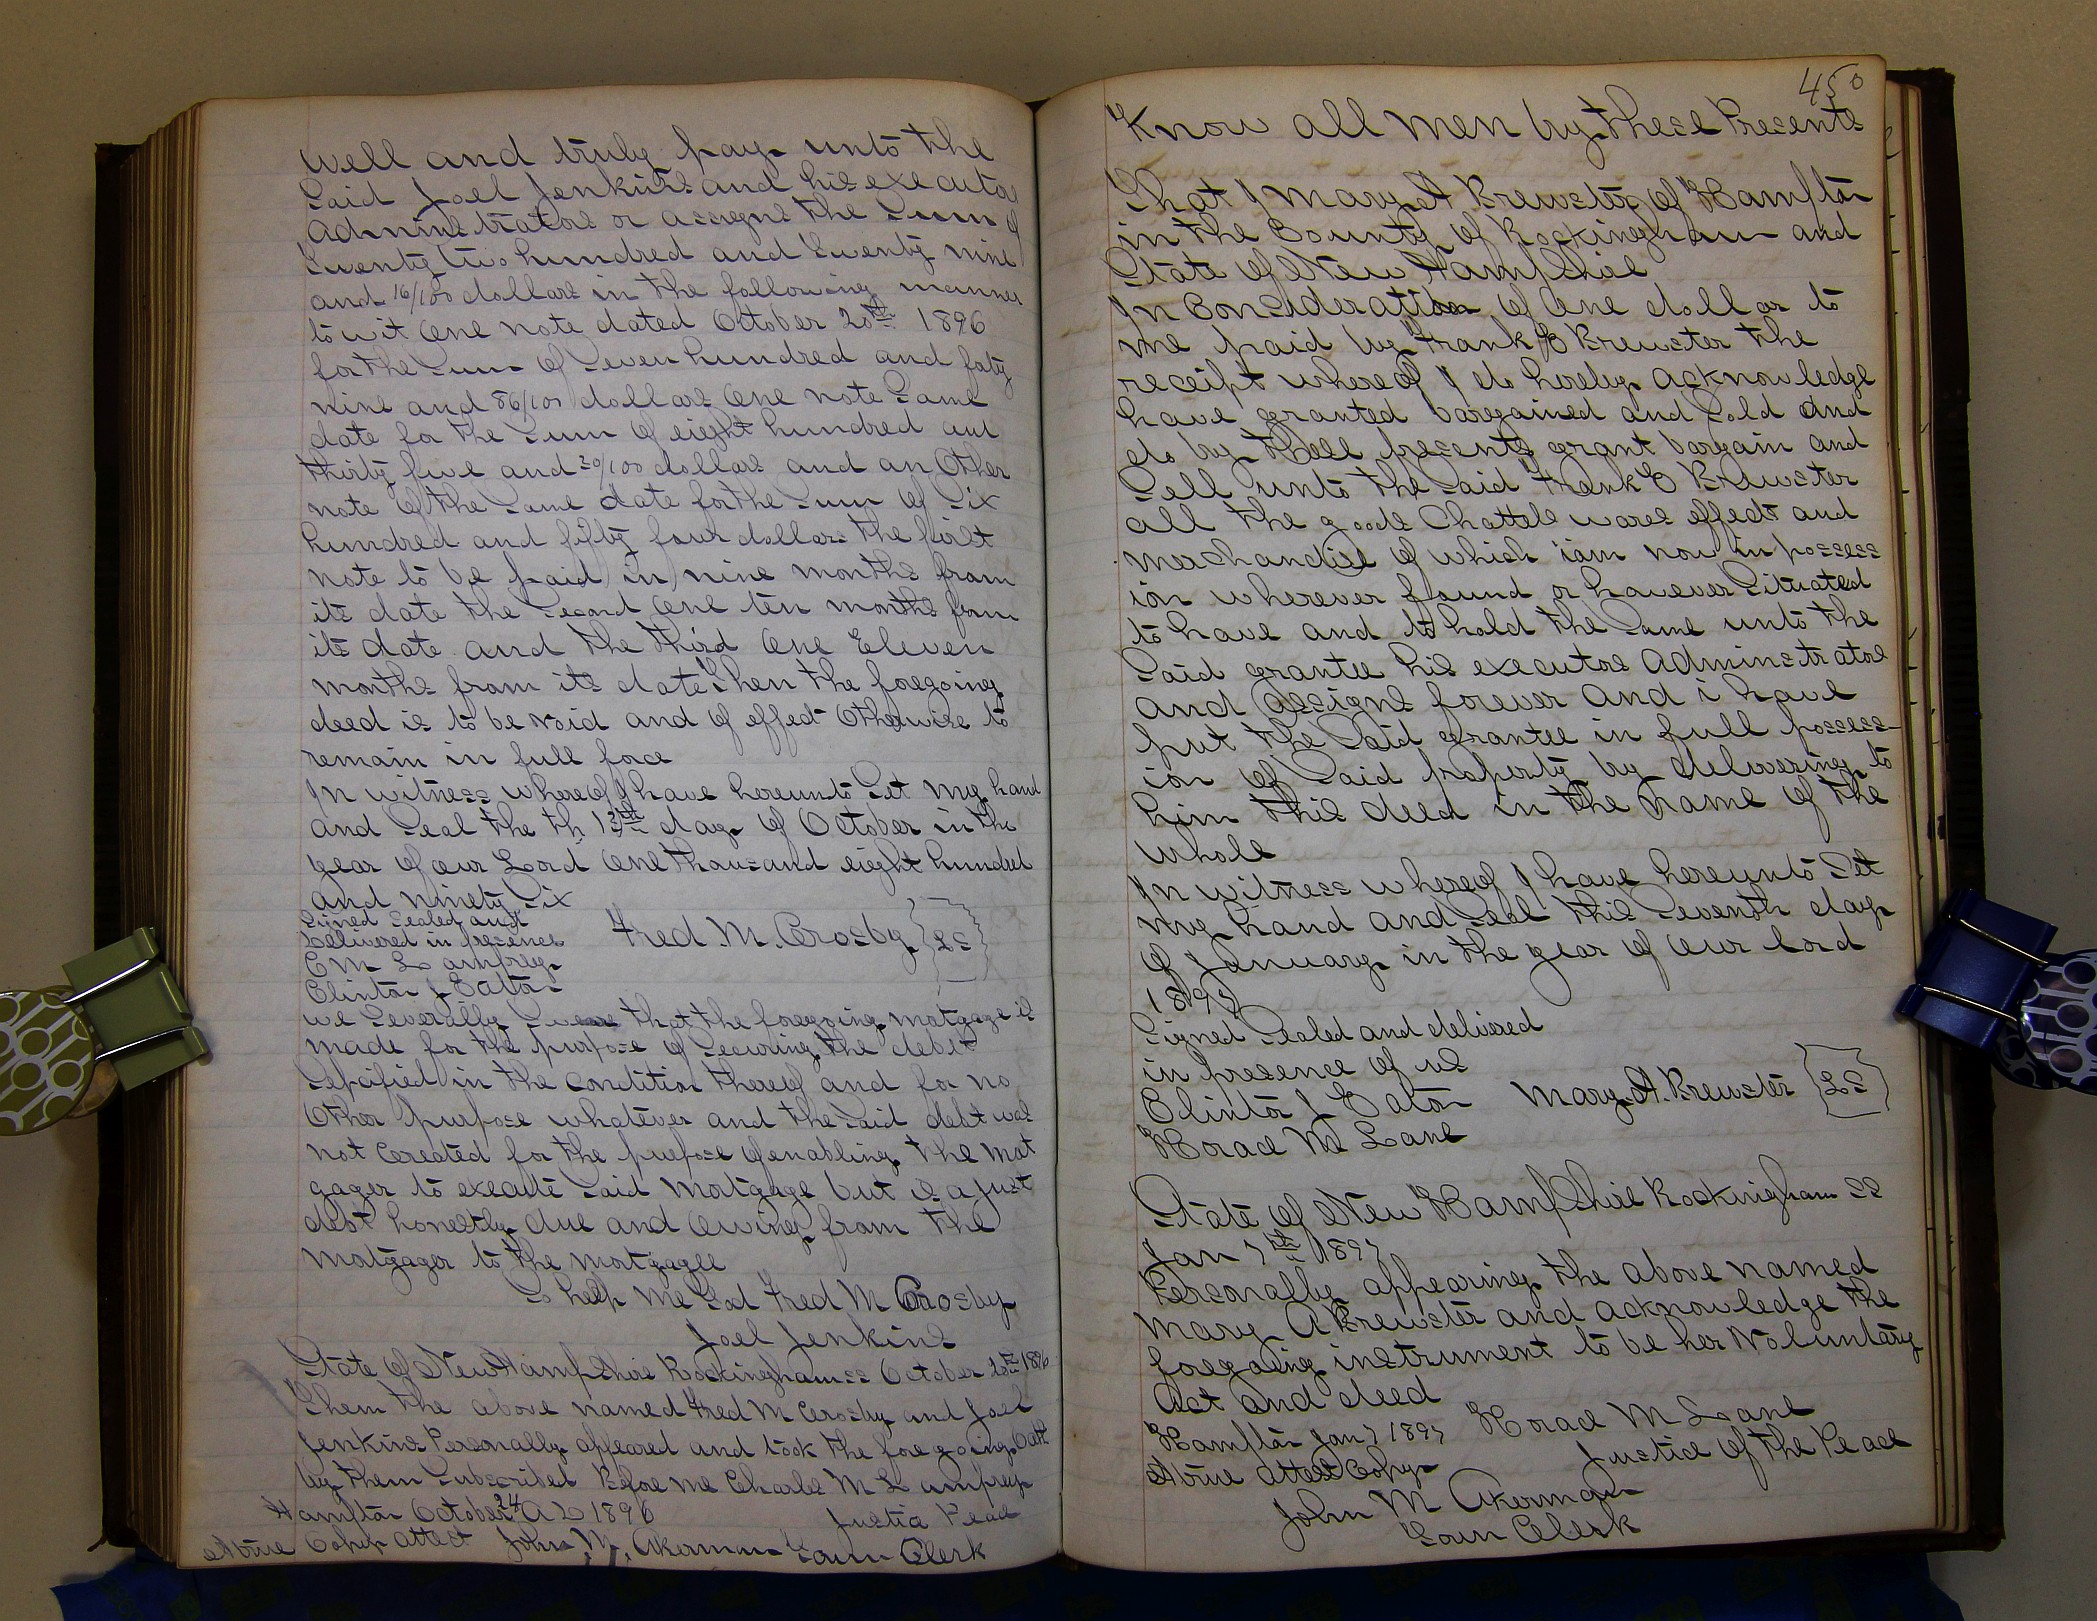 well and truly pay unto the
Said Joel Jenkins and his executors
Administrators or assigns the Sum of
Twenty two hundred and Twenty nine
and 16/100 dollars in the following manner
to wit One note dated October 20th 1896
for the Sum of Seven hundred and forty
nine and 86/100 dollars One note Same
date for the Sum of eight hundred and
thirty five and 30/100 dollars and an Other
note of the Same date for the Sum of Six
hundred and fifty four dollars the first
note to be paid in nine months from
its date the Second One ten months from
its date and the third One Eleven
months from its date Then the foregoing
deed is to be void and of effect Otherwise to
remain in full force
In witness whereof I have hereunto Set my hand
and Seal the th 13th day of October in the
year of our Lord One thousand eight hundred
and ninety Six
Signed Sealed and
Delivered in presence
C M Lamprey
Clinton J Eaton
Fred. M. Crosby {LS}
we Severally Swear that the foregoing mortgage is
made for the purpose of Securing the debt
Sepcified in the condition thereof and for no
Other purpose whatever and the Said debt was
not Cereated for the purpose of enabling the mort
gager to execute Said mortgage but is a just
debt honestly due and Owing from the
mortgager to the mortgagee
So help me God Fred M Crosby
Joel Jenkins
State of New Hampshire Rockingham ss October 20th 1896
Them the above named Fred M Crosby and Joel
Jenkins Personally appeared and took the foregoing Oath
by them Subscribed Before me Charles M Lamprey
Hampton October 24 AD 1896 Justice Peace
A true Copy attest John M. Akerman Town Clerk
450
Know all men by these Presents
That I Mary A Brewster of Hampton
in the County of Rockingham and
State of New Hampshire
In Consideration of One dollar to
me paid by Frank E Brewster the
receipt whereof I do hereby acknowledge
have granted bargained and Sold and
do by these presents grant bargain and
Sell unto the Said Frank E Brewster
all the goods Chattels wares effects and
merchandise of which iam now in possess
ion wherever found or however Situated
to have and to hold the Same unto the
Said grantee his executors Adminstrators
and assigns forever and i have
put the Said grantee in full possess-
ion of Said property by delivering to
him this deed in the name of the
whole
In witness whereof I have hereunto Set
my hand and Seal this Seventh day
of January in the year of our Lord
1897
Signed Sealed and delivered
in presence of us
Clinton J Eaton Mary A. Brewster {LS}
Horace M Lane
State of New Hampshire Rockingham SS
Jan 7th 1897
Personally appearing the above named
Mary A Brewster and acknowledge the
foregoing instrument to be her Voluntary
Act and deed
Hampton Jan 7 1897 Horace M Lane
A true attest Copy Justice of the Peace
John M Akerman
Town Clerk